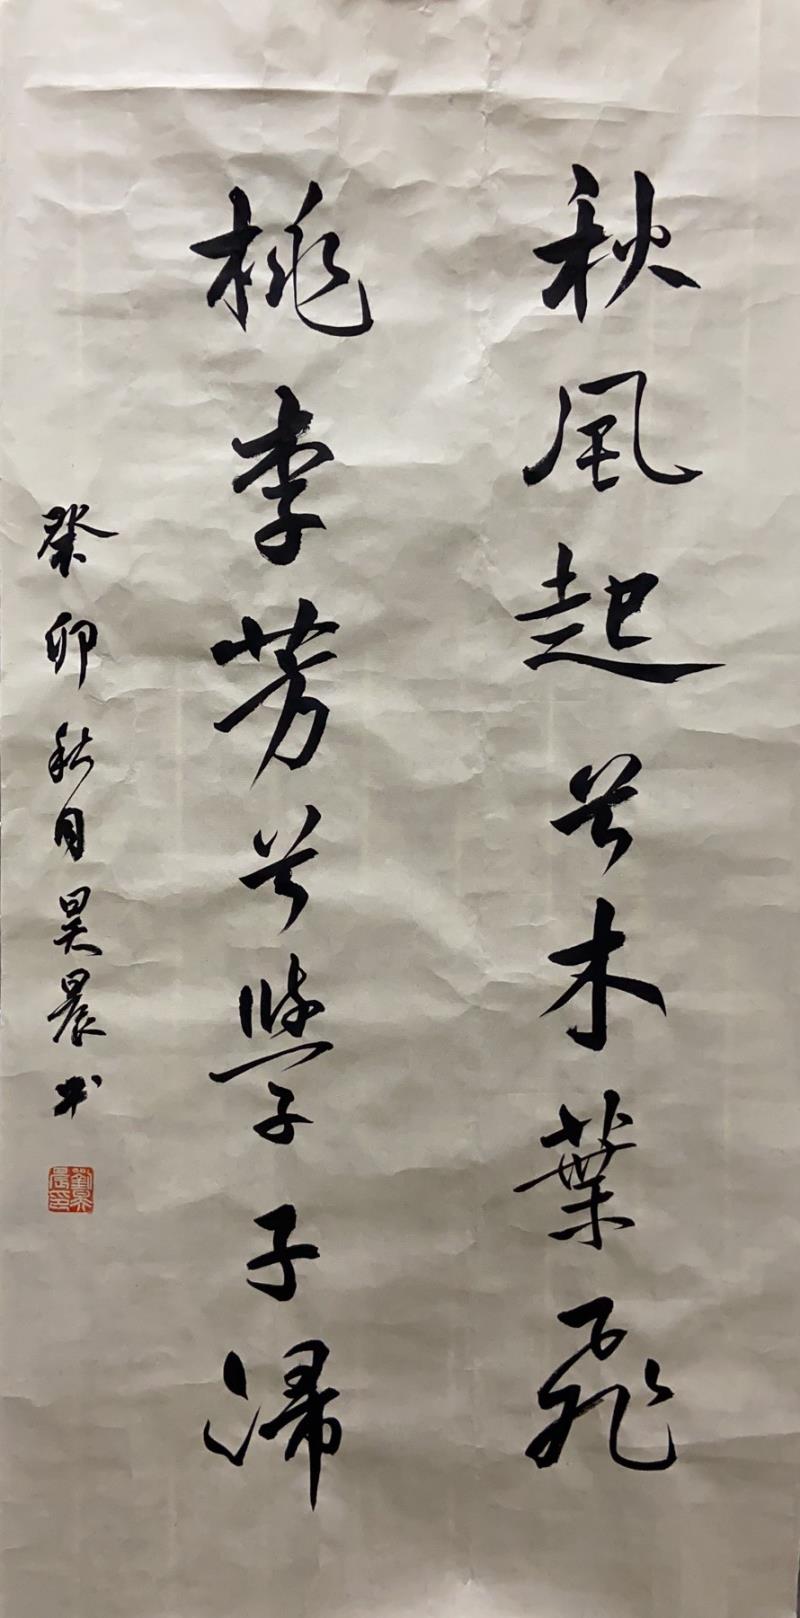 秋風起兮木葉飛
桃李芳兮學子歸
癸卯秋月昊晨书
劉昊晨印